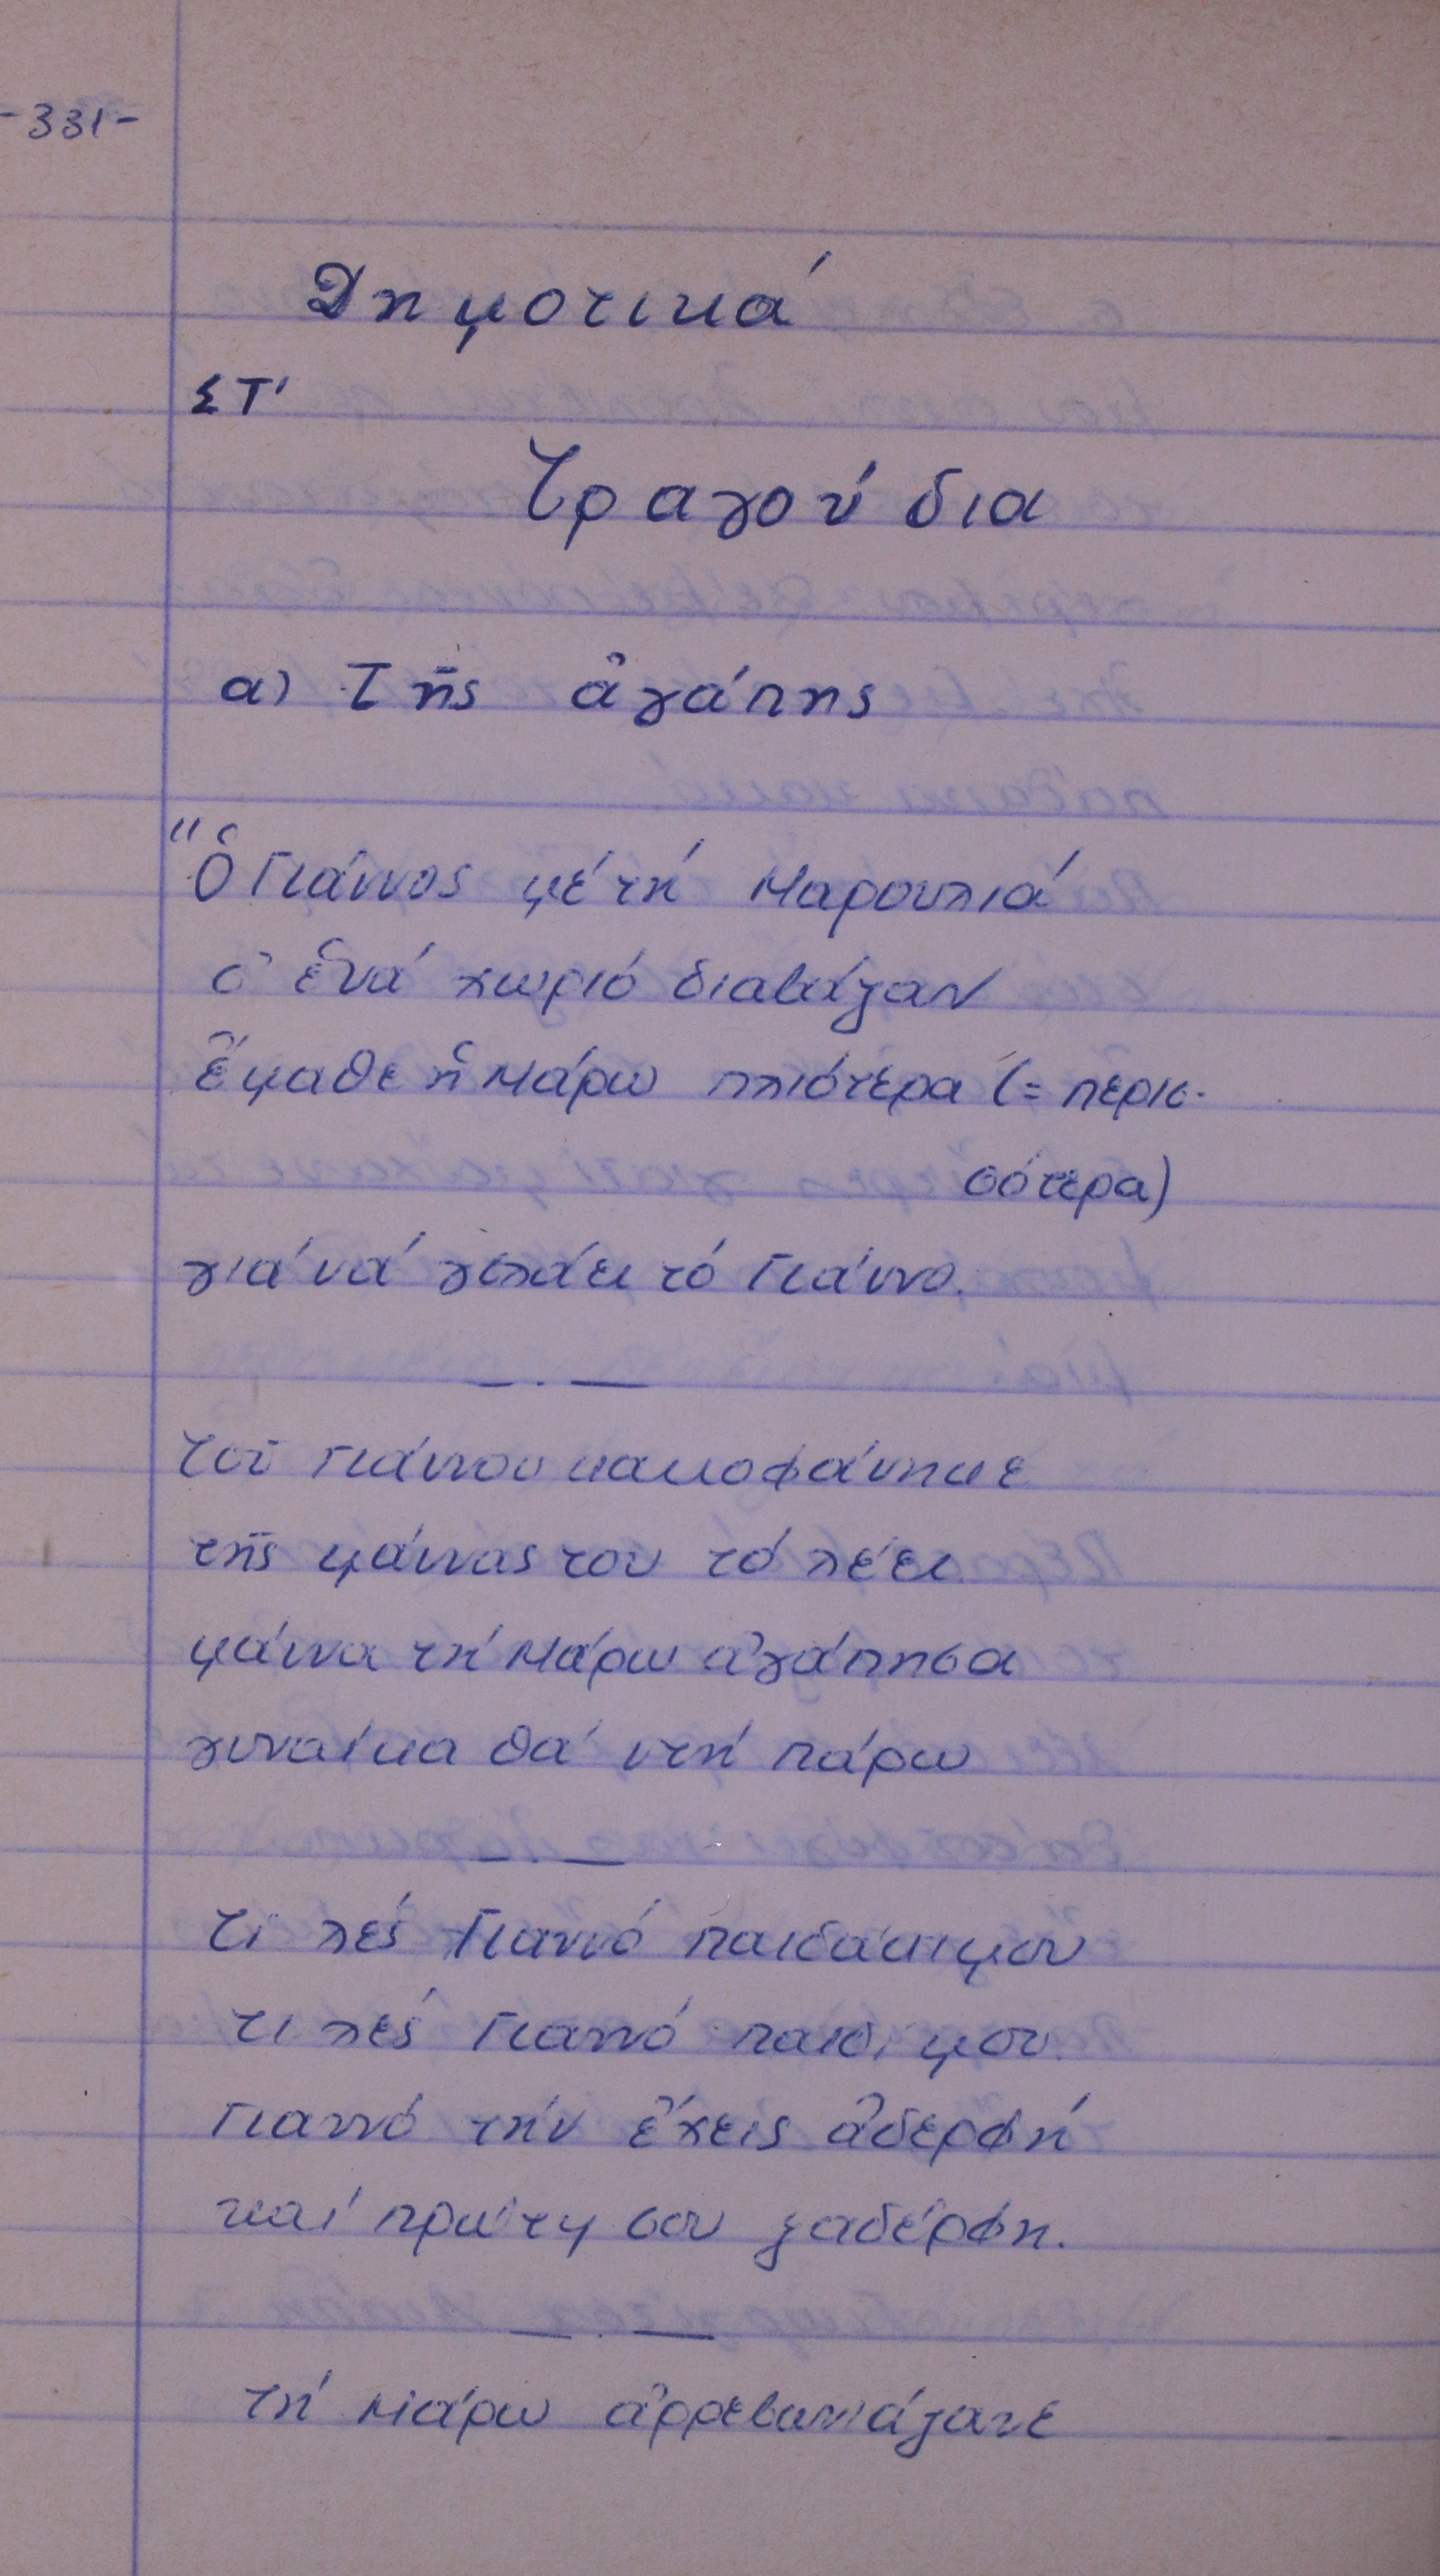 -331-
Δημοτικά
ΣΤ'
Τραγούδια
α) Τῆς ἀγάπης
"Ὁ Γιάννος μέ τή Μαρουλιά
σ' ἑνά χωριό διαβάζαν
ἔμαθε ἡ Μάρω πλιότερα (= περισ-
σότερα)
γιά νά γελάει τό Γιάννο.
— . —
τοῦ Γιάννου κακοφάνηκε
τῆς μάννας του τό λέει
μάννα τή Μάρω ἀγάπησα
γυναίκα θά ντή πάρω
— . —
τί λές Γιαννό παιδάκι μου
τι λές Γιαννό παιδί μου.
Γιαννό τήν ἔχεις ἀδερφή
καί πρώτη σου ξαδέρφη.
— . —
τή Μάρω ἀρρεβωνιάζανε